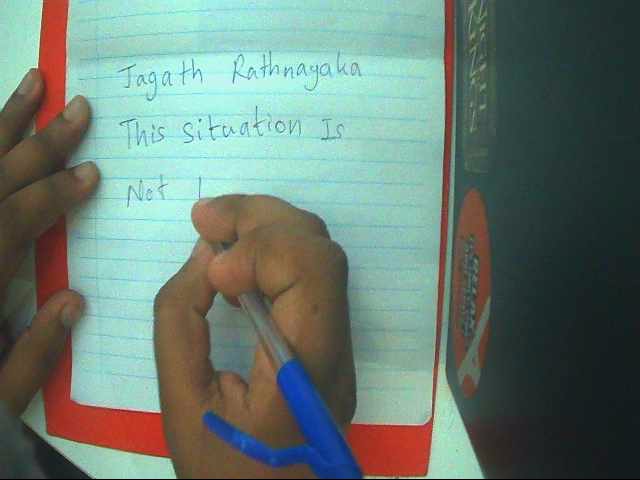 Jagath Rathnayaka
This situation Is
Not